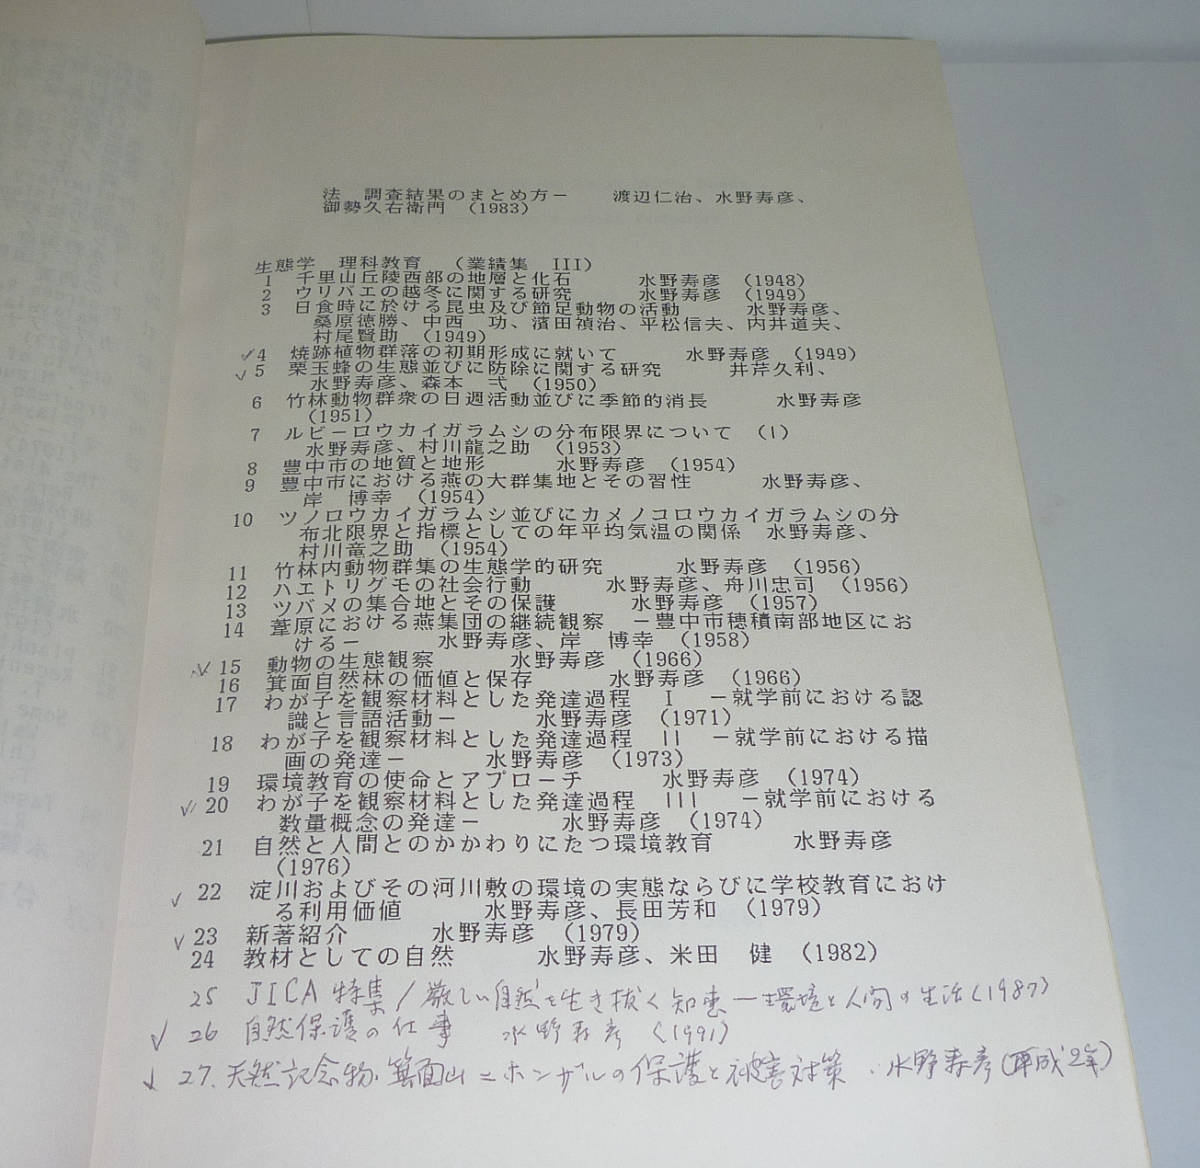 法　調査結果のまとめ方－　　渡辺仁治、水野寿彦、
御勢久右衛門　(1983)
生態学　理科教育　(業績集　III)
1　千里山丘陵西部の地層と化石　　　水野寿彦　(1948)
2　ウリバエの越冬に関する研究　　　水野寿彦　(1949)
3　日食時に於ける昆虫及び節足動物の活動　　　水野寿彦、
桑原徳勝、中西　功、濱田禎治、平松信夫、内井道夫、
村尾賢助　(1949)
✓4　焼跡植物群落の初期形成に就いて　　　水野寿彦　(1949)
✓5　栗玉蜂の生態並びに防除に関する研究　　　井芹久利、
水野寿彦、森本　弌　(1950)
6　竹林動物群衆の日週活動並びに季節的消長　　　水野寿彦
(1951)
7　ルビーロウカイガラムシの分布限界について　(I)
水野寿彦、村川龍之助　(1953)
8　豊中市の地質と地形　　　水野寿彦　(1954)
9　豊中市における燕の大群集地とその習性　　　水野寿彦、
岸　博幸　(1954)
10　ツノロウカイガラムシ並びにカメノコロウカイガラムシの分
布北限界と指標としての年平均気温の関係　水野寿彦、
村川竜之助　(1954)
11　竹林内動物群集の生態学的研究　　　水野寿彦　(1956)
12　ハエトリグモの社会行動　　　水野寿彦、舟川忠司　(1956)
13　ツバメの集合地とその保護　　　水野寿彦　(1957)
14　葦原における燕集団の継続観察　－豊中市穂積南部地区にお
ける－　　　水野寿彦、岸　博幸　(1958)
✓15　動物の生態観察　　　水野寿彦　(1966)
16　箕面自然林の価値と保存　　　水野寿彦　(1966)
17　わが子を観察材料とした発達過程　I　－就学前における認
識と言語活動－　　　水野寿彦　(1971)
18　わが子を観察材料とした発達過程　II　－就学前における描
画の発達－　　　水野寿彦　(1973)
19　環境教育の使命とアプローチ　　　水野寿彦　(1974)
✓20　わが子を観察材料とした発達過程　III　－就学前における
数量概念の発達－　　　水野寿彦　(1974)
21　自然と人間とのかかわりにたつ環境教育　　　水野寿彦
(1976)
✓22　淀川およびその河川敷の環境の実態ならびに学校教育におけ
る利用価値　　　水野寿彦、長田芳和　(1979)
✓23　新著紹介　　　水野寿彦　(1979)
24　教材としての自然　　　水野寿彦、米田　健　(1982)
25　JICA 特集/厳しい自然を生き抜く知恵―環境と人間の生活(1987)
✓26　自然保護の仕事　　水野寿彦　(1991)
✓27. 天然記念物・箕面山ニホンザルの保護と被害対策・水野寿彦(平成2年)